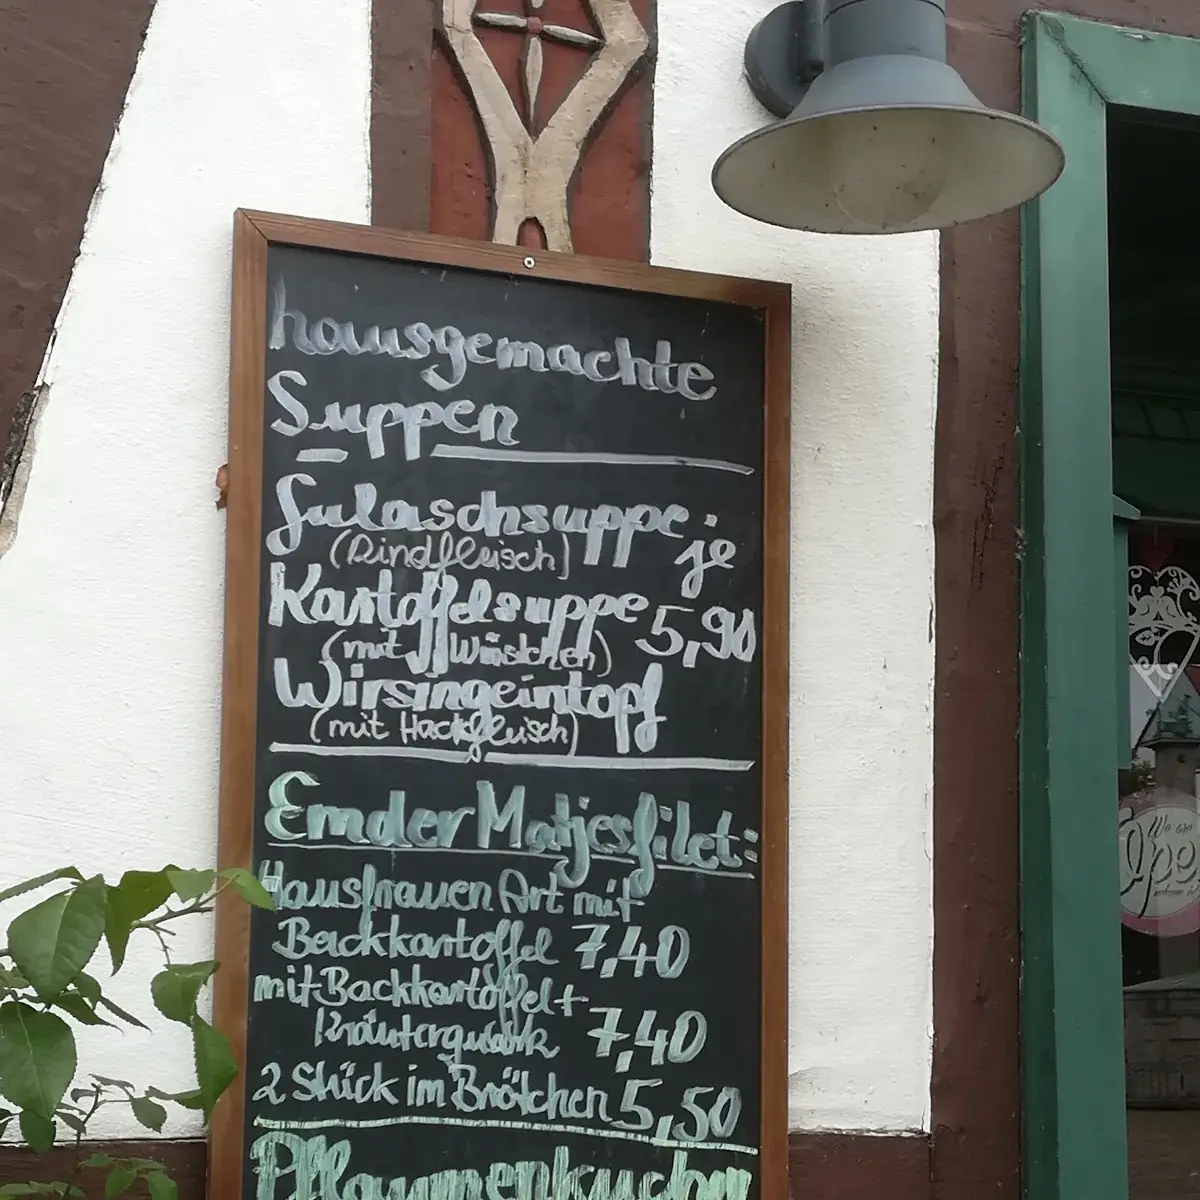 hausgemachte
Suppen
Gulaschsuppe. je
(Rindfleisch)
Kartoffelsuppe 5,90
(mit Würstchen)
Wirsingeintopf
(mit Hackfleisch)
Emder Matjesfilet:
Hausfrauen Art mit
Backkartoffel 7,40
mit Backkartoffel +
Kräuterquark 7,40
2 Stück im Brötchen 5,50
Pflaumenkuchen
We are
Open